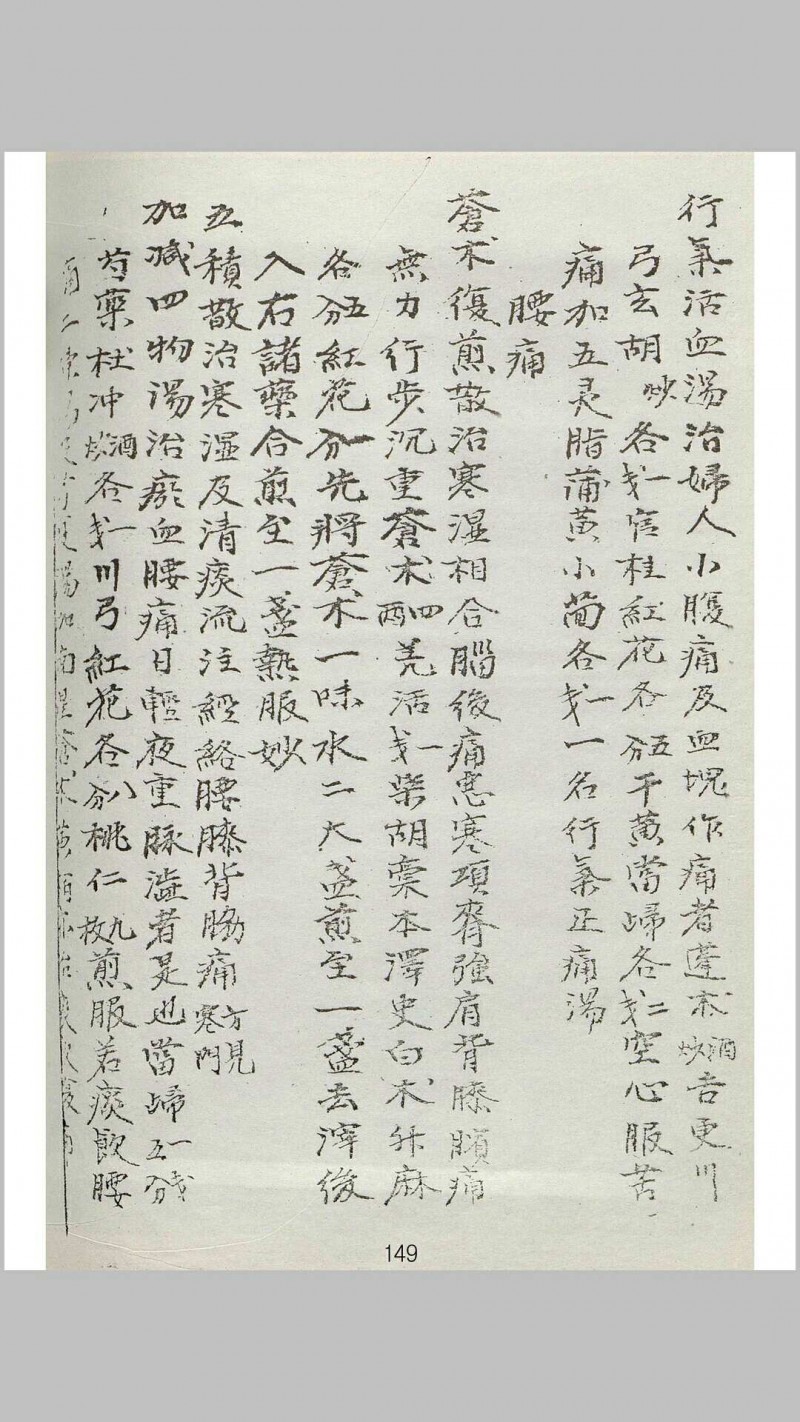 行氣活血湯治婦人小腹痛及血塊作痛者蓬朮酒炒吉更川
弓玄胡炒各一戋官桂紅花各五分干黃當歸各二戋空心服苦
痛加五灵脂蒲黃小茴各一戋一名行氣正痛湯
腰痛
蒼朮復煎散治寒湿相合腦後痛悪寒項脊強肩背膝臏痛
無力行步沉重蒼朮四兩羌活一戋柴胡藁本澤史白朮升麻
各五分紅花一分先將蒼朮一味水二大盞煎至一盞去滓後
入右諸藥合煎至一盞熱服妙
五積散治寒湿及清痰流注經絡腰膝背脇痛方見寒門
加减四物湯治瘀血腰痛日輕夜重脉澁者是也當歸一戋五分
芍藥杜冲酒炒各一戋川弓紅花各八分桃仁九枚煎服若痰飲腰
痛二陳湯
149